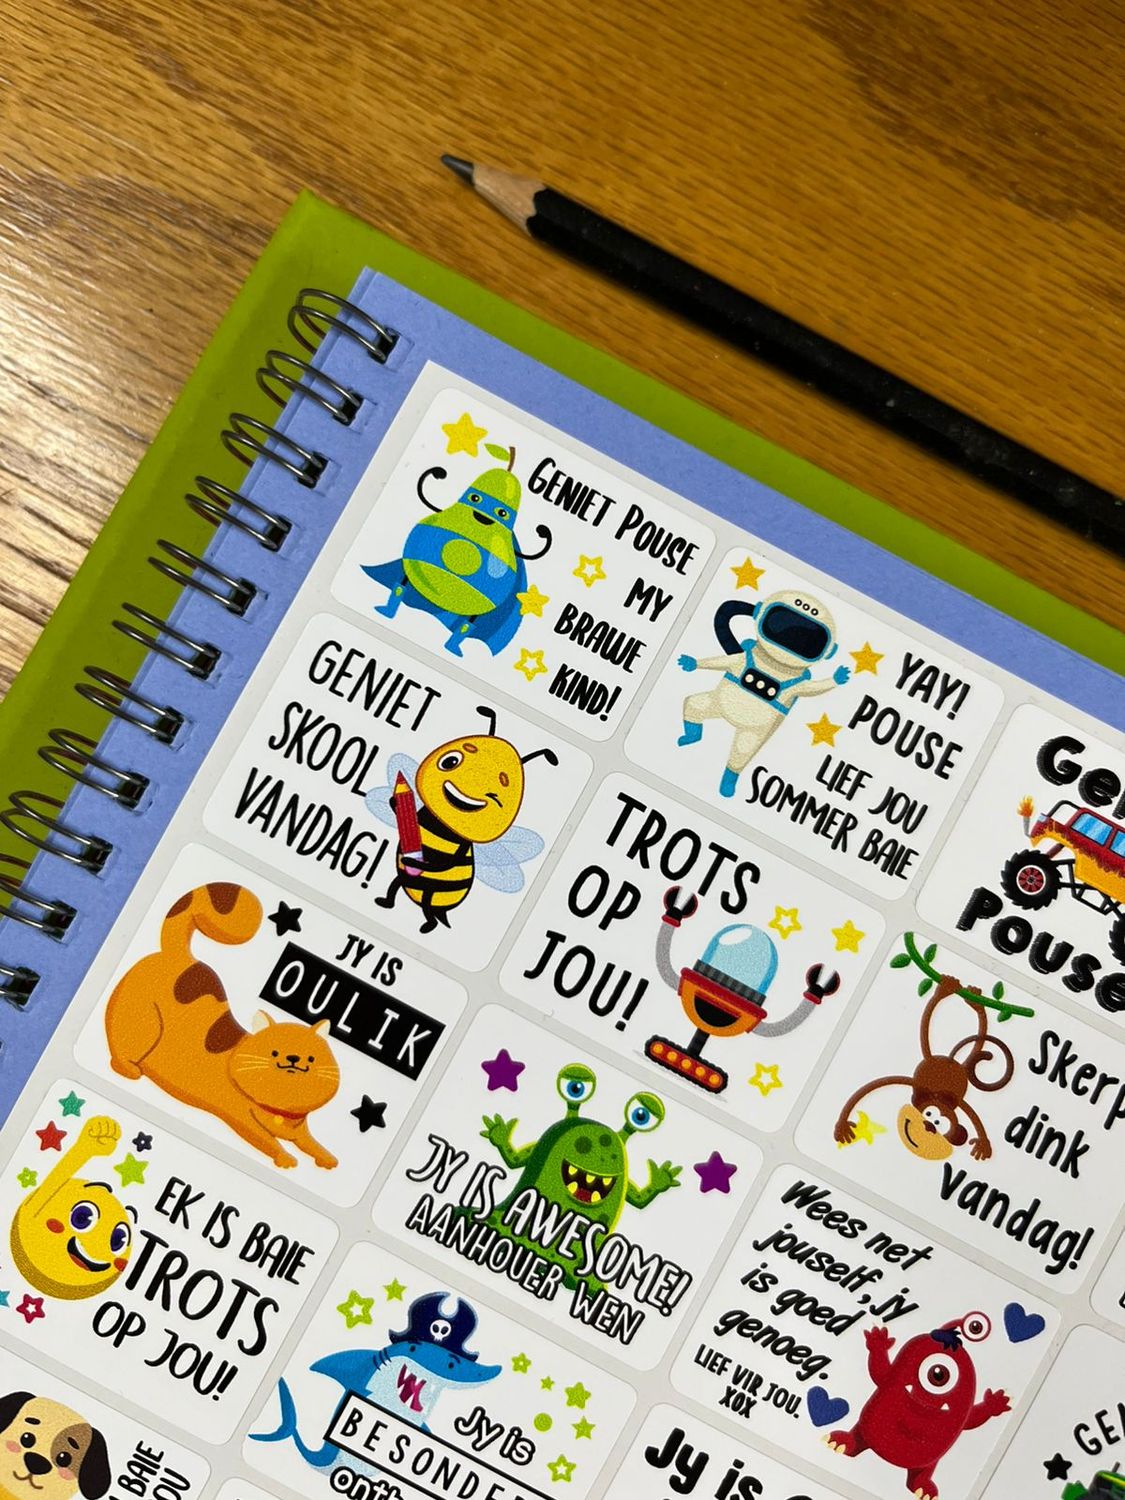 GENIET POUSE
MY
BRAWE
KIND!
YAY!
POUSE
LIEF JOU
SOMMER BAIE
POUSE
GENIET
SKOOL
VANDAG!
TROTS
OP
JOU!
Skerp
dink
vandag!
JY IS
OULIK
JY IS AWESOME!
AANHOUER WEN
Wees net
jouself, jy
is goed
genoeg.
LIEF VIR JOU.
XOX
EK IS BAIE
TROTS
OP JOU!
Jy is
BAIE
Jy is